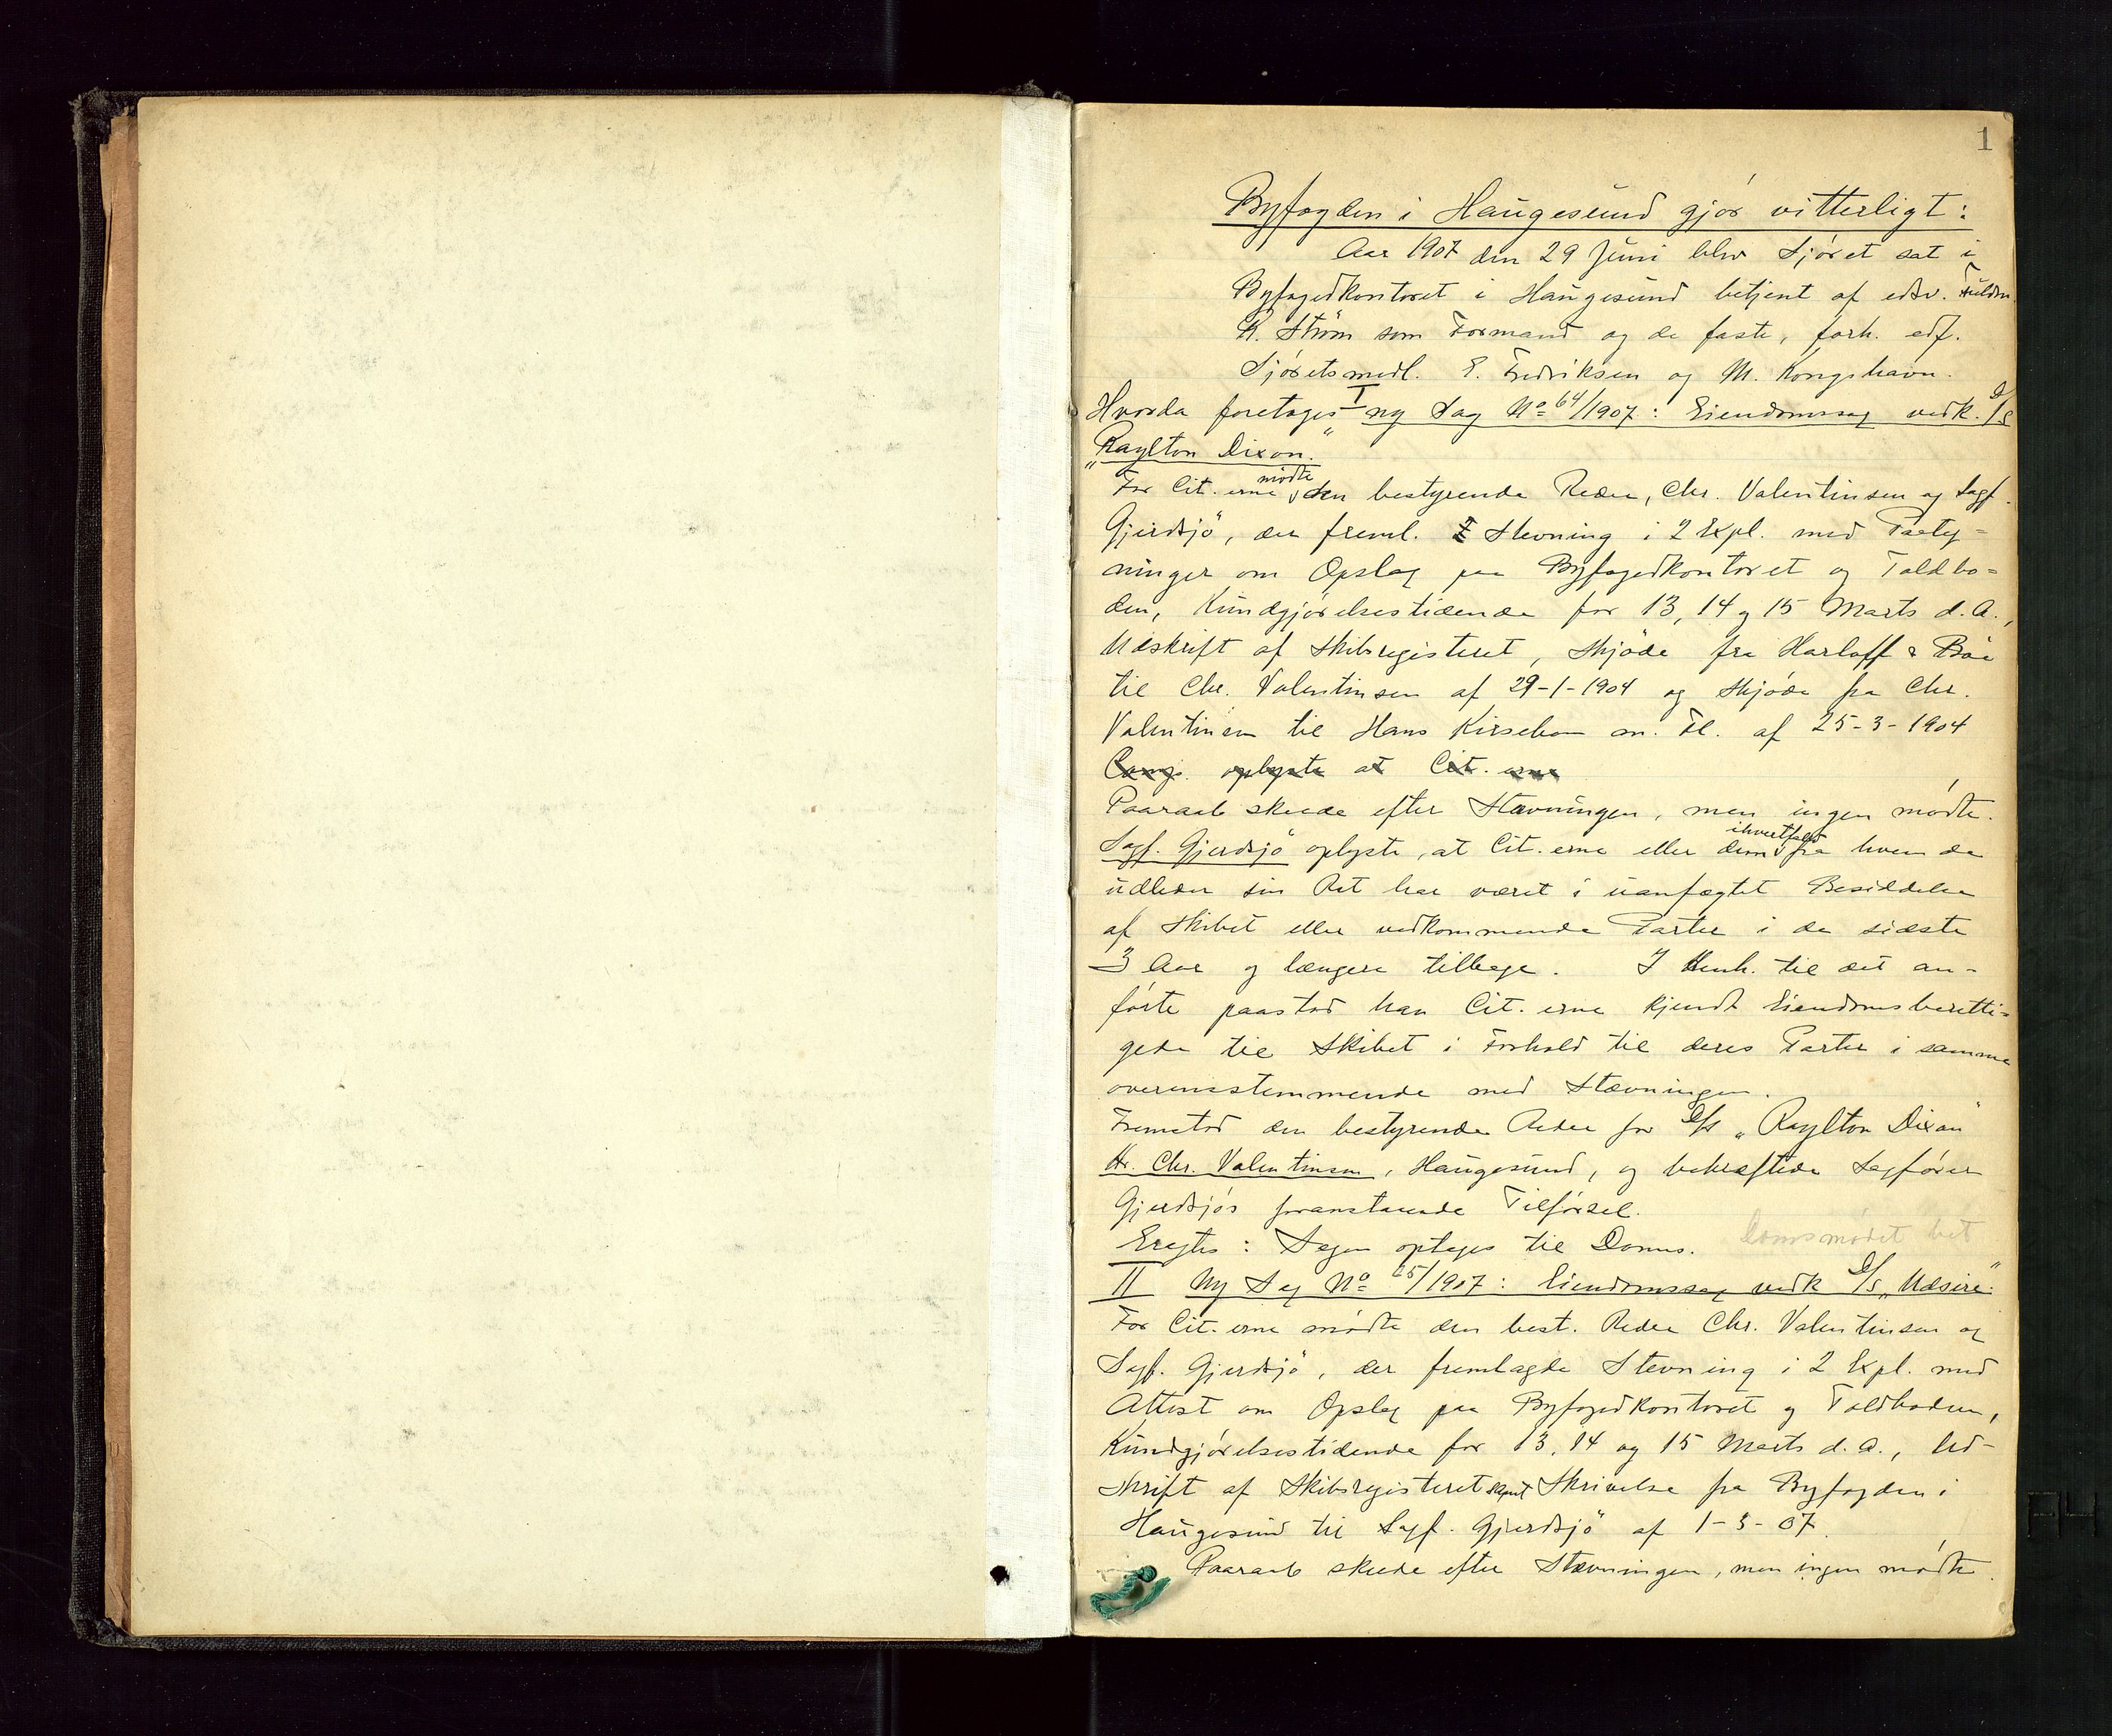 1
Byfogden i Haugesund gjør vitterligt:
Aar 1907 den 29 Juni blev Sjøret sat i
Byfogedkontoret i Haugesund betjent af edsv. Fuldm.
K. Strøm som Formand og de faste, forh. edf.
Sjøretsmedl. E. Fredriksen og M. Kongshavn.
Hvorda foretoges I ny Sag No 64/1907: Eiendomssag vedk. D/S
„Raylton Dixon."
For Cit.erne mødte den bestyrende Reder, Chr. Valentinsen og Sagf.
Gjerdsjö, der freml. Stevning i 2 Expl. med Paateg-
ninger om Opslag paa Byfogedkontoret og Toldbo-
den, Kundgjørelsestidende for 13, 14 og 15 Marts d.A.,
Udskrift af Skibsregisteret, Skjøde fra Harloff & Bøe
til Chr. Valentinsen af 29-1-1904 og Skjøde fra Chr.
Valentinsen til Hans Kirsebom m. Fl. af 25-3-1904
oplyste at Cit.erne
Paaraab skeede efter Stævningen, men ingen mødte.
Sagf. Gjerdsjö oplyste, at Cit.erne eller dem ihvertfald fra hvem de
udleder sin Ret har været i uanfægtet Besiddelse
af Skibet eller vedkommende Parter i de sidste
3 Aar og længere tilbage. I Henh. til det an-
førte paastod han Cit.erne kjendt Eiendomsberetti-
gede til Skibet i Forhold til deres Parter i samme
overensstemmende med Stævningen.
Fremstod den bestyrende Reder for D/S „Raylton Dixon"
Hr. Chr. Valentinsen, Haugesund, og bekræftede Sagfører
Gjerdsjös foranstaaende Tilførsel.
Eragtes: Sagen optages til Doms. Domsmødet
II Ny Sag No 65/1907: Eiendomssag vedk D/S „Udsire".
For Cit.erne mødte den best. Reder Chr. Valentinsen og
Sagf. Gjerdsjö, der fremlagde Stevning i 2 Expl. med
Attest om Opslag paa Byfogedkontoret og Toldboden,
Kundgjørelsestidende for 13, 14 og 15 Marts d.A., Ud-
skrift af Skibsregisteret samt Skrivelse fra Byfogden i
Haugesund til Sagf. Gjerdsjö af 1-3-07.
Paaraab skeede efter Stævningen, men ingen mødte.